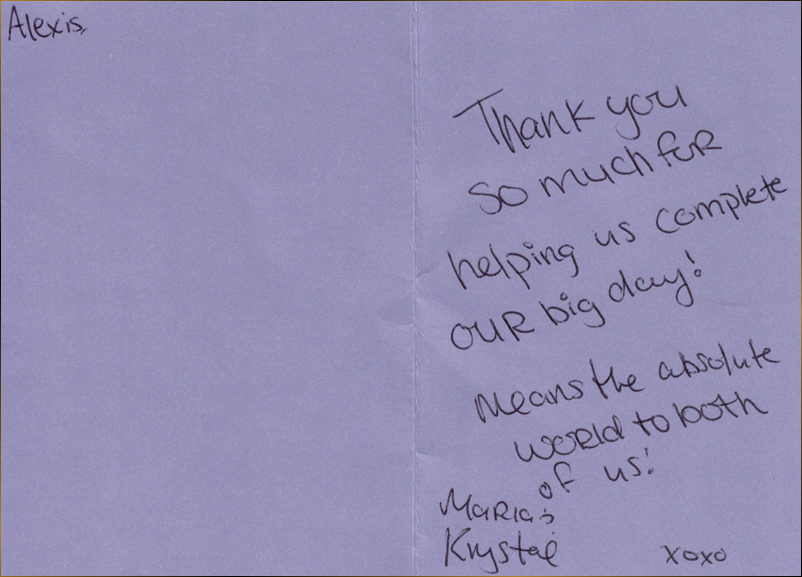 Alexis,
Thank you
so much for
helping us complete
our big day!
Means the absolute
world to both
of us!
Maria &
Krystal
xoxo